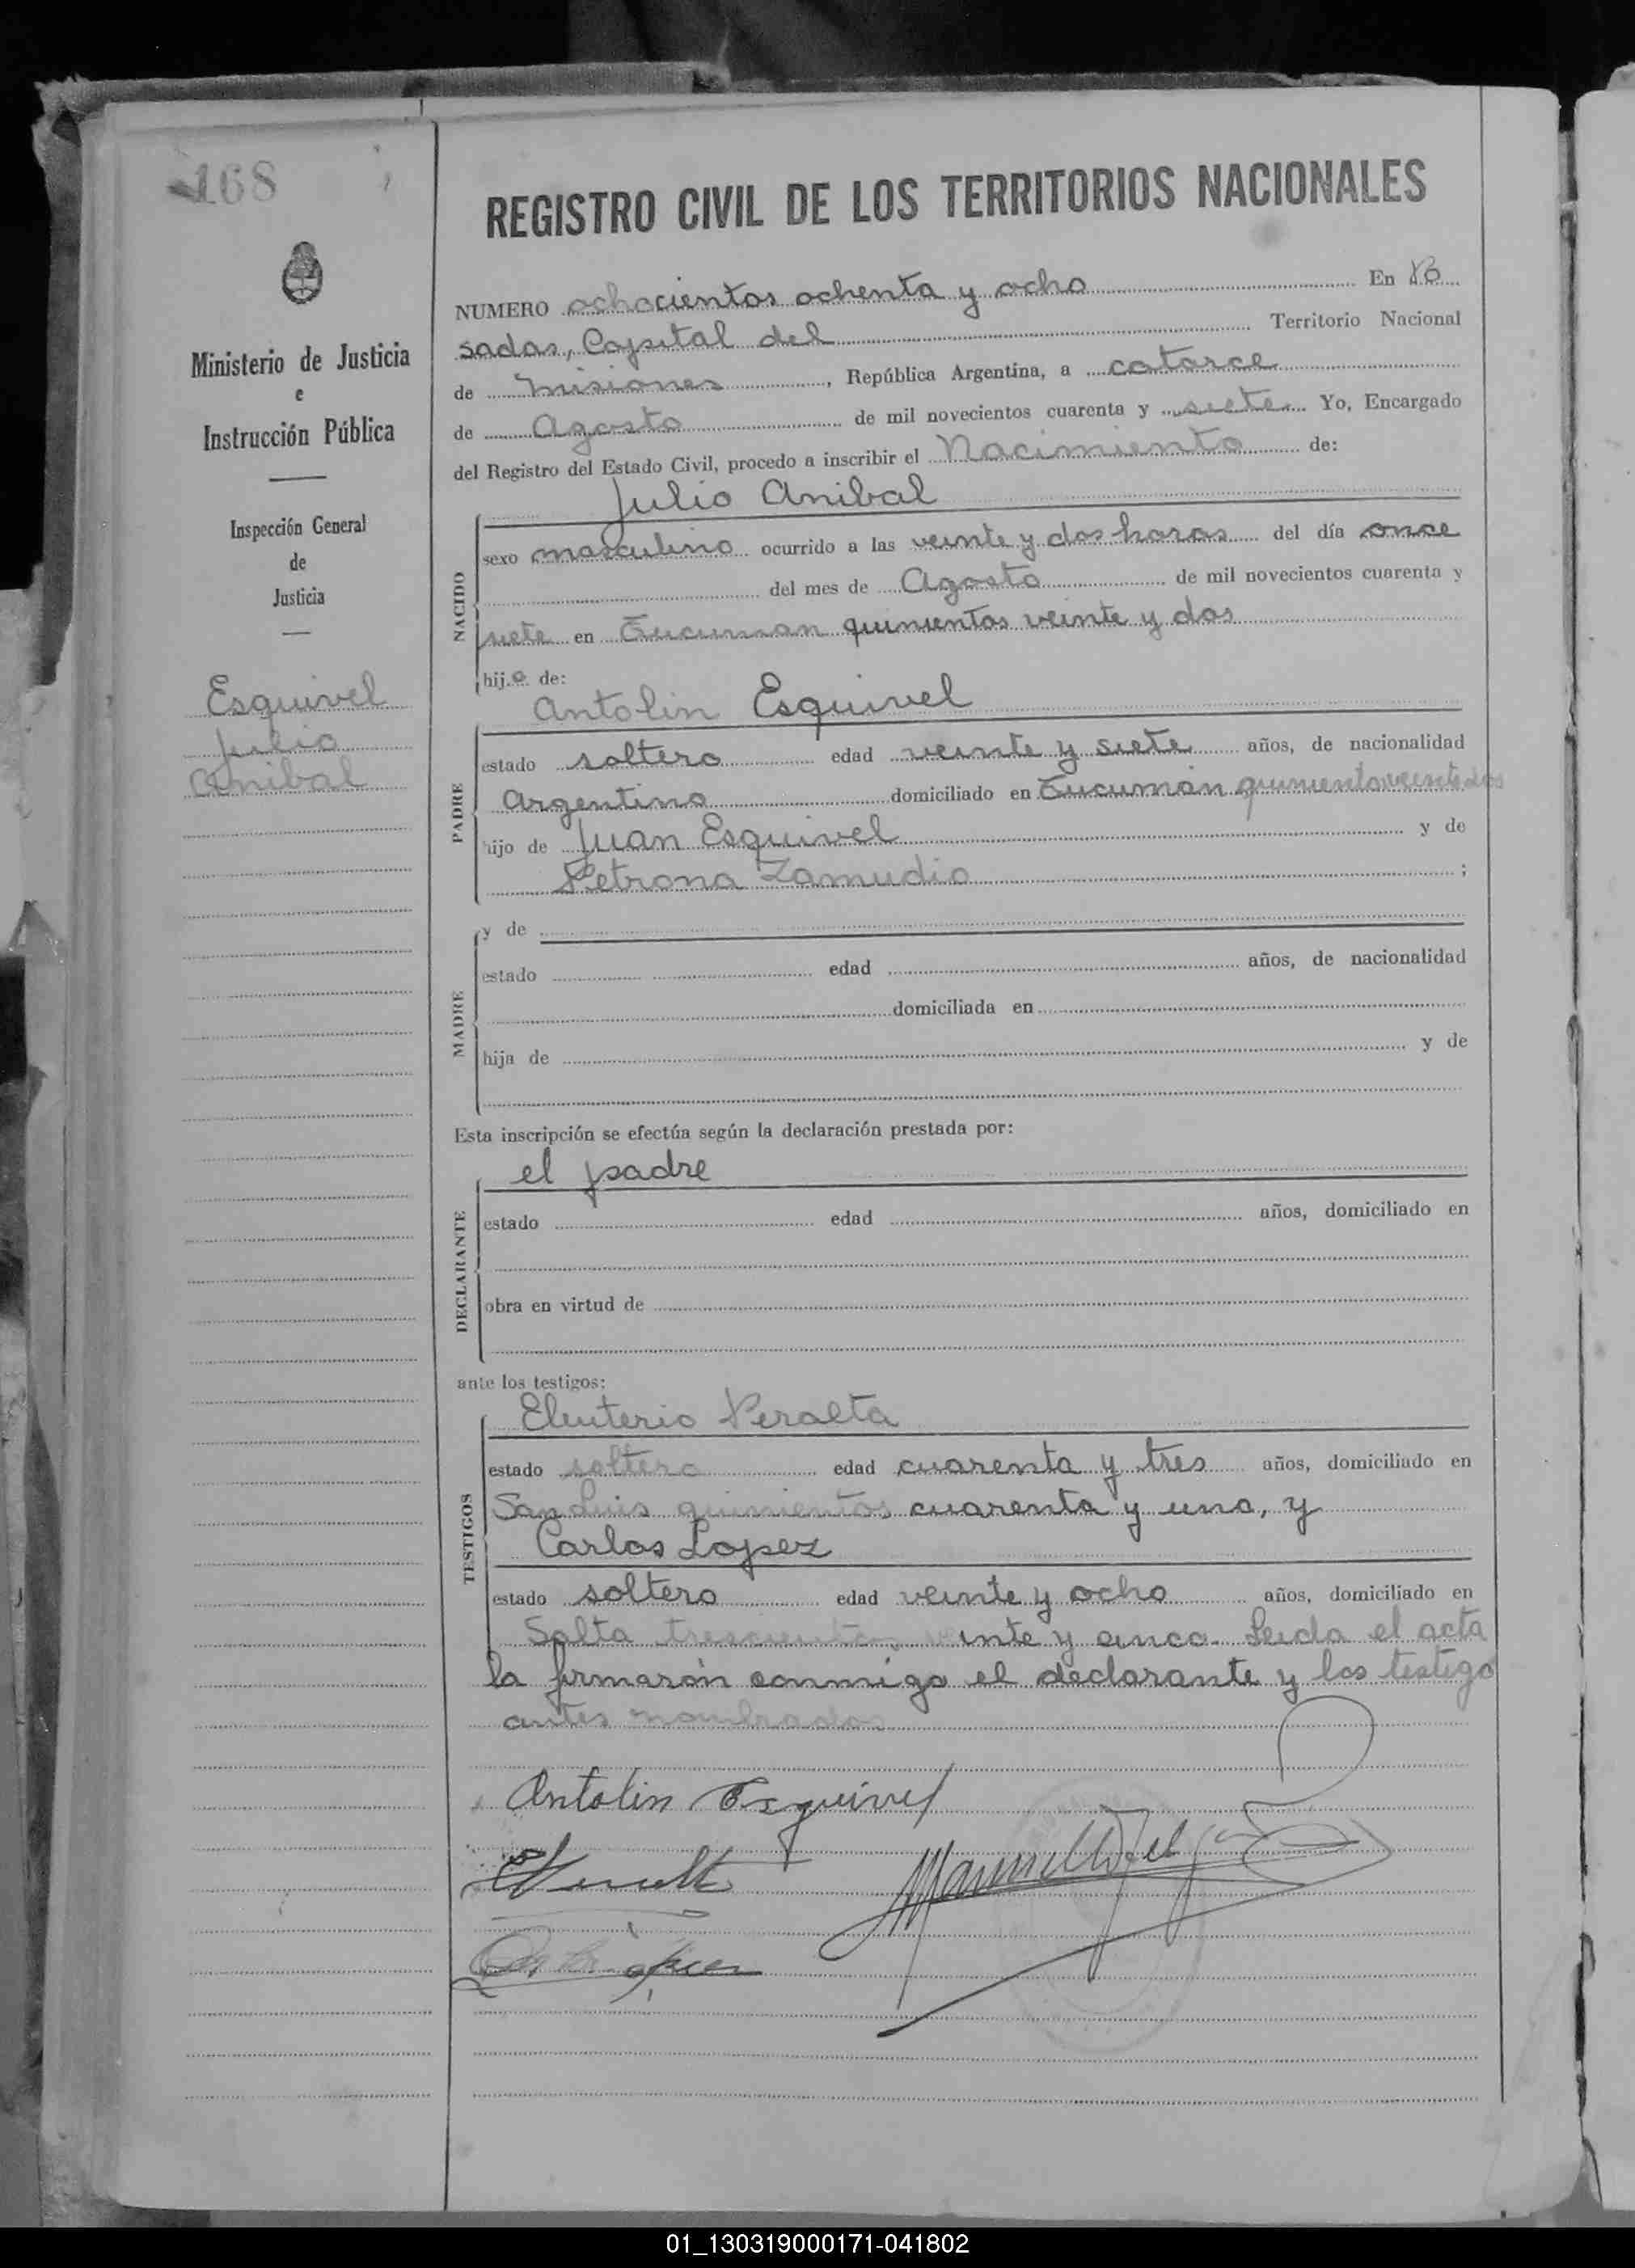 168
REGISTRO CIVIL DE LOS TERRITORIOS NACIONALES
Ministerio de Justicia
e
Instrucción Pública
Inspección General
de
Justicia
Esquivel
Julio
Anibal
NUMERO ochocientos ochenta y ocho En Po
sadas, Capital del Territorio Nacional
de Misiones, República Argentina, a catorce
de Agosto de mil novecientos cuarenta y siete Yo, Encargado
del Registro del Estado Civil, procedo a inscribir el Nacimiento de:
Julio Anibal
NACIDO
sexo masculino ocurrido a las veinte y dos horas del día once
del mes de Agosto de mil novecientos cuarenta y
siete en Tucuman quinientos veinte y dos
hijo de:
Antolin Esquivel
PADRE
estado soltero edad veinte y siete años, de nacionalidad
Argentino domiciliado en Tucumán quinientos veintidos
hijo de Juan Esquivel y de
Petrona Zamudio ;
MADRE
y de
estado edad años, de nacionalidad
domiciliada en
hija de y de
Esta inscripción se efectúa según la declaración prestada por:
el padre
DECLARANTE
estado edad años, domiciliado en
obra en virtud de
ante los testigos:
TESTIGOS
Eleuterio Peralta
estado soltero edad cuarenta y tres años, domiciliado en
San Luis quinientos cuarenta y uno, y
Carlos Lopez
estado soltero edad veinte y ocho años, domiciliado en
Salta trescientos veinte y cinco. Leida el acta
la firmarón conmigo el declarante y los testigo
antes nombrados
Antolin Esquivel
01_130319000171-041802